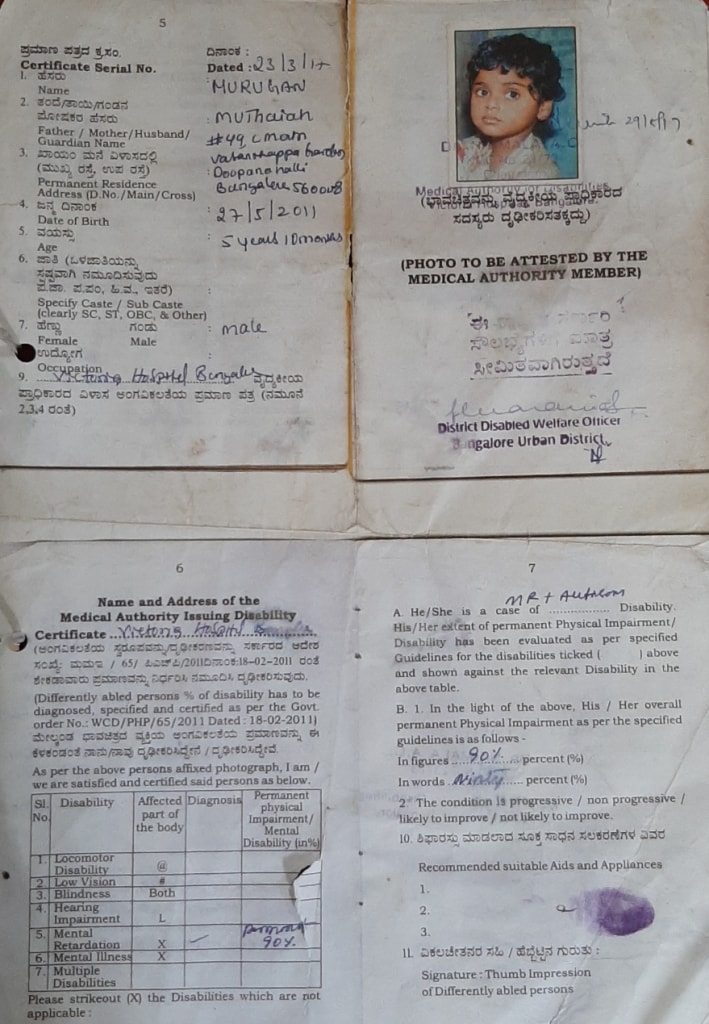 5
ಪ್ರಮಾಣ ಪತ್ರದ ಕ್ರ.ಸಂ.
Certificate Serial No.
ದಿನಾಂಕ :
Dated : 23/3/17
1. ಹೆಸರು
Name
: MURUGAN
2. ತಂದೆ/ತಾಯಿ/ಗಂಡನ
ಪೋಷಕರ ಹೆಸರು
Father / Mother/Husband/
Guardian Name
: MUThaiah
3. ಖಾಯಂ ಮನೆ ವಿಳಾಸದಲ್ಲಿ
(ಮುಖ್ಯ ರಸ್ತೆ, ಉಪ ರಸ್ತೆ)
Permanent Residence
Address (D.No./Main/Cross)
#49 C main
Doopanahalli
Bangalore 560008
4. ಜನ್ಮ ದಿನಾಂಕ
Date of Birth
: 27/5/2011
5. ವಯಸ್ಸು
Age
: 5 years 10 months
6. ಜಾತಿ (ಒಳಜಾತಿಯನ್ನು
ಸ್ಪಷ್ಟವಾಗಿ ನಮೂದಿಸುವುದು
ಪ.ಜಾ. ಪ.ಪಂ, ಹಿ.ವ., ಇತರೆ)
Specify Caste / Sub Caste
(clearly SC, ST, OBC, & Other)
7. ಹೆಣ್ಣು ಗಂಡು
Female Male
: male
ಉದ್ಯೋಗ
Occupation
9. Victoria Hospital Bangalore ವೈದ್ಯಕೀಯ
ಪ್ರಾಧಿಕಾರದ ವಿಳಾಸ ಅಂಗವಿಕಲತೆಯ ಪ್ರಮಾಣ ಪತ್ರ (ನಮೂನೆ
2,3,4 ರಂತೆ)
Medical Authority for Disabilities
(ಭಾವಚಿತ್ರವನ್ನು ವೈದ್ಯಕೀಯ ಪ್ರಾಧಿಕಾರದ
ಸದಸ್ಯರು ದೃಢೀಕರಿಸತಕ್ಕದ್ದು)
(PHOTO TO BE ATTESTED BY THE
MEDICAL AUTHORITY MEMBER)
ಈ
ಸೌಲಭ್ಯಗಳಿಗೆ ಮಾತ್ರ
ಸೀಮಿತವಾಗಿರುತ್ತದೆ
District Disabled Welfare Officer
Bangalore Urban District.
6
Name and Address of the
Medical Authority Issuing Disability
Certificate ..Victoria Hospital
(ಅಂಗವಿಕಲತೆಯ ಸ್ವರೂಪವನ್ನು/ದೃಢೀಕರಣವನ್ನು ಸರ್ಕಾರದ ಆದೇಶ
ಸಂಖ್ಯೆ: ಮಮಇ / 65/ ಪಿಎಚ್‌ಪಿ/2011ದಿನಾಂಕ:18-02-2011 ರಂತೆ
ಶೇಕಡಾವಾರು ಪ್ರಮಾಣವನ್ನು ನಿರ್ಧರಿಸಿ ನಮೂದಿಸಿ ದೃಢೀಕರಿಸುವುದು.
(Differently abled persons % of disability has to be
diagnosed, specified and certified as per the Govt.
order No.: WCD/PHP/65/2011 Dated : 18-02-2011)
ಮೇಲ್ಕಂಡ ಭಾವಚಿತ್ರದ ವ್ಯಕ್ತಿಯ ಅಂಗವಿಕಲತೆಯ ಪ್ರಮಾಣವನ್ನು ಈ
ಕೆಳಕಂಡಂತೆ ನಾನು/ನಾವು ದೃಢೀಕರಿಸಿದ್ದೇನೆ / ದೃಢೀಕರಿಸಿದ್ದೇವೆ.
As per the above persons affixed photograph, I am /
we are satisfied and certified said persons as below.
Sl. No. Disability Affected part of the body Diagnosis Permanent physical Impairment/ Mental Disability (in%)
1. Locomotor Disability @
2. Low Vision #
3. Blindness Both
4. Hearing Impairment L
5. Mental Retardation X 90%
6. Mental Illness X
7. Multiple Disabilities
Please strikeout (X) the Disabilities which are not
applicable :
7
MR + Autism
A. He/She is a case of .................. Disability.
His/Her extent of permanent Physical Impairment/
Disability has been evaluated as per specified
Guidelines for the disabilities ticked ( ) above
and shown against the relevant Disability in the
above table.
B. 1. In the light of the above, His / Her overall
permanent Physical Impairment as per the specified
guidelines is as follows -
In figures ..90%..... percent (%)
In words ..Ninty..... percent (%)
2. The condition is progressive / non progressive /
likely to improve / not likely to improve.
10. ಶಿಫಾರಸ್ಸು ಮಾಡಲಾದ ಸೂಕ್ತ ಸಾಧನ ಸಲಕರಣೆಗಳ ವಿವರ
Recommended suitable Aids and Appliances
1.
2.
3.
11. ವಿಕಲಚೇತನರ ಸಹಿ / ಹೆಬ್ಬೆಟ್ಟಿನ ಗುರುತು :
Signature : Thumb Impression
of Differently abled persons